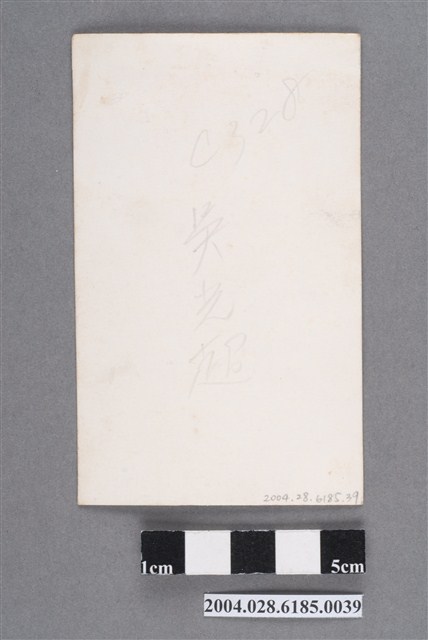 C328
吳
光
2004.28.6185.39
1cm
5cm
2004.028.6185.0039